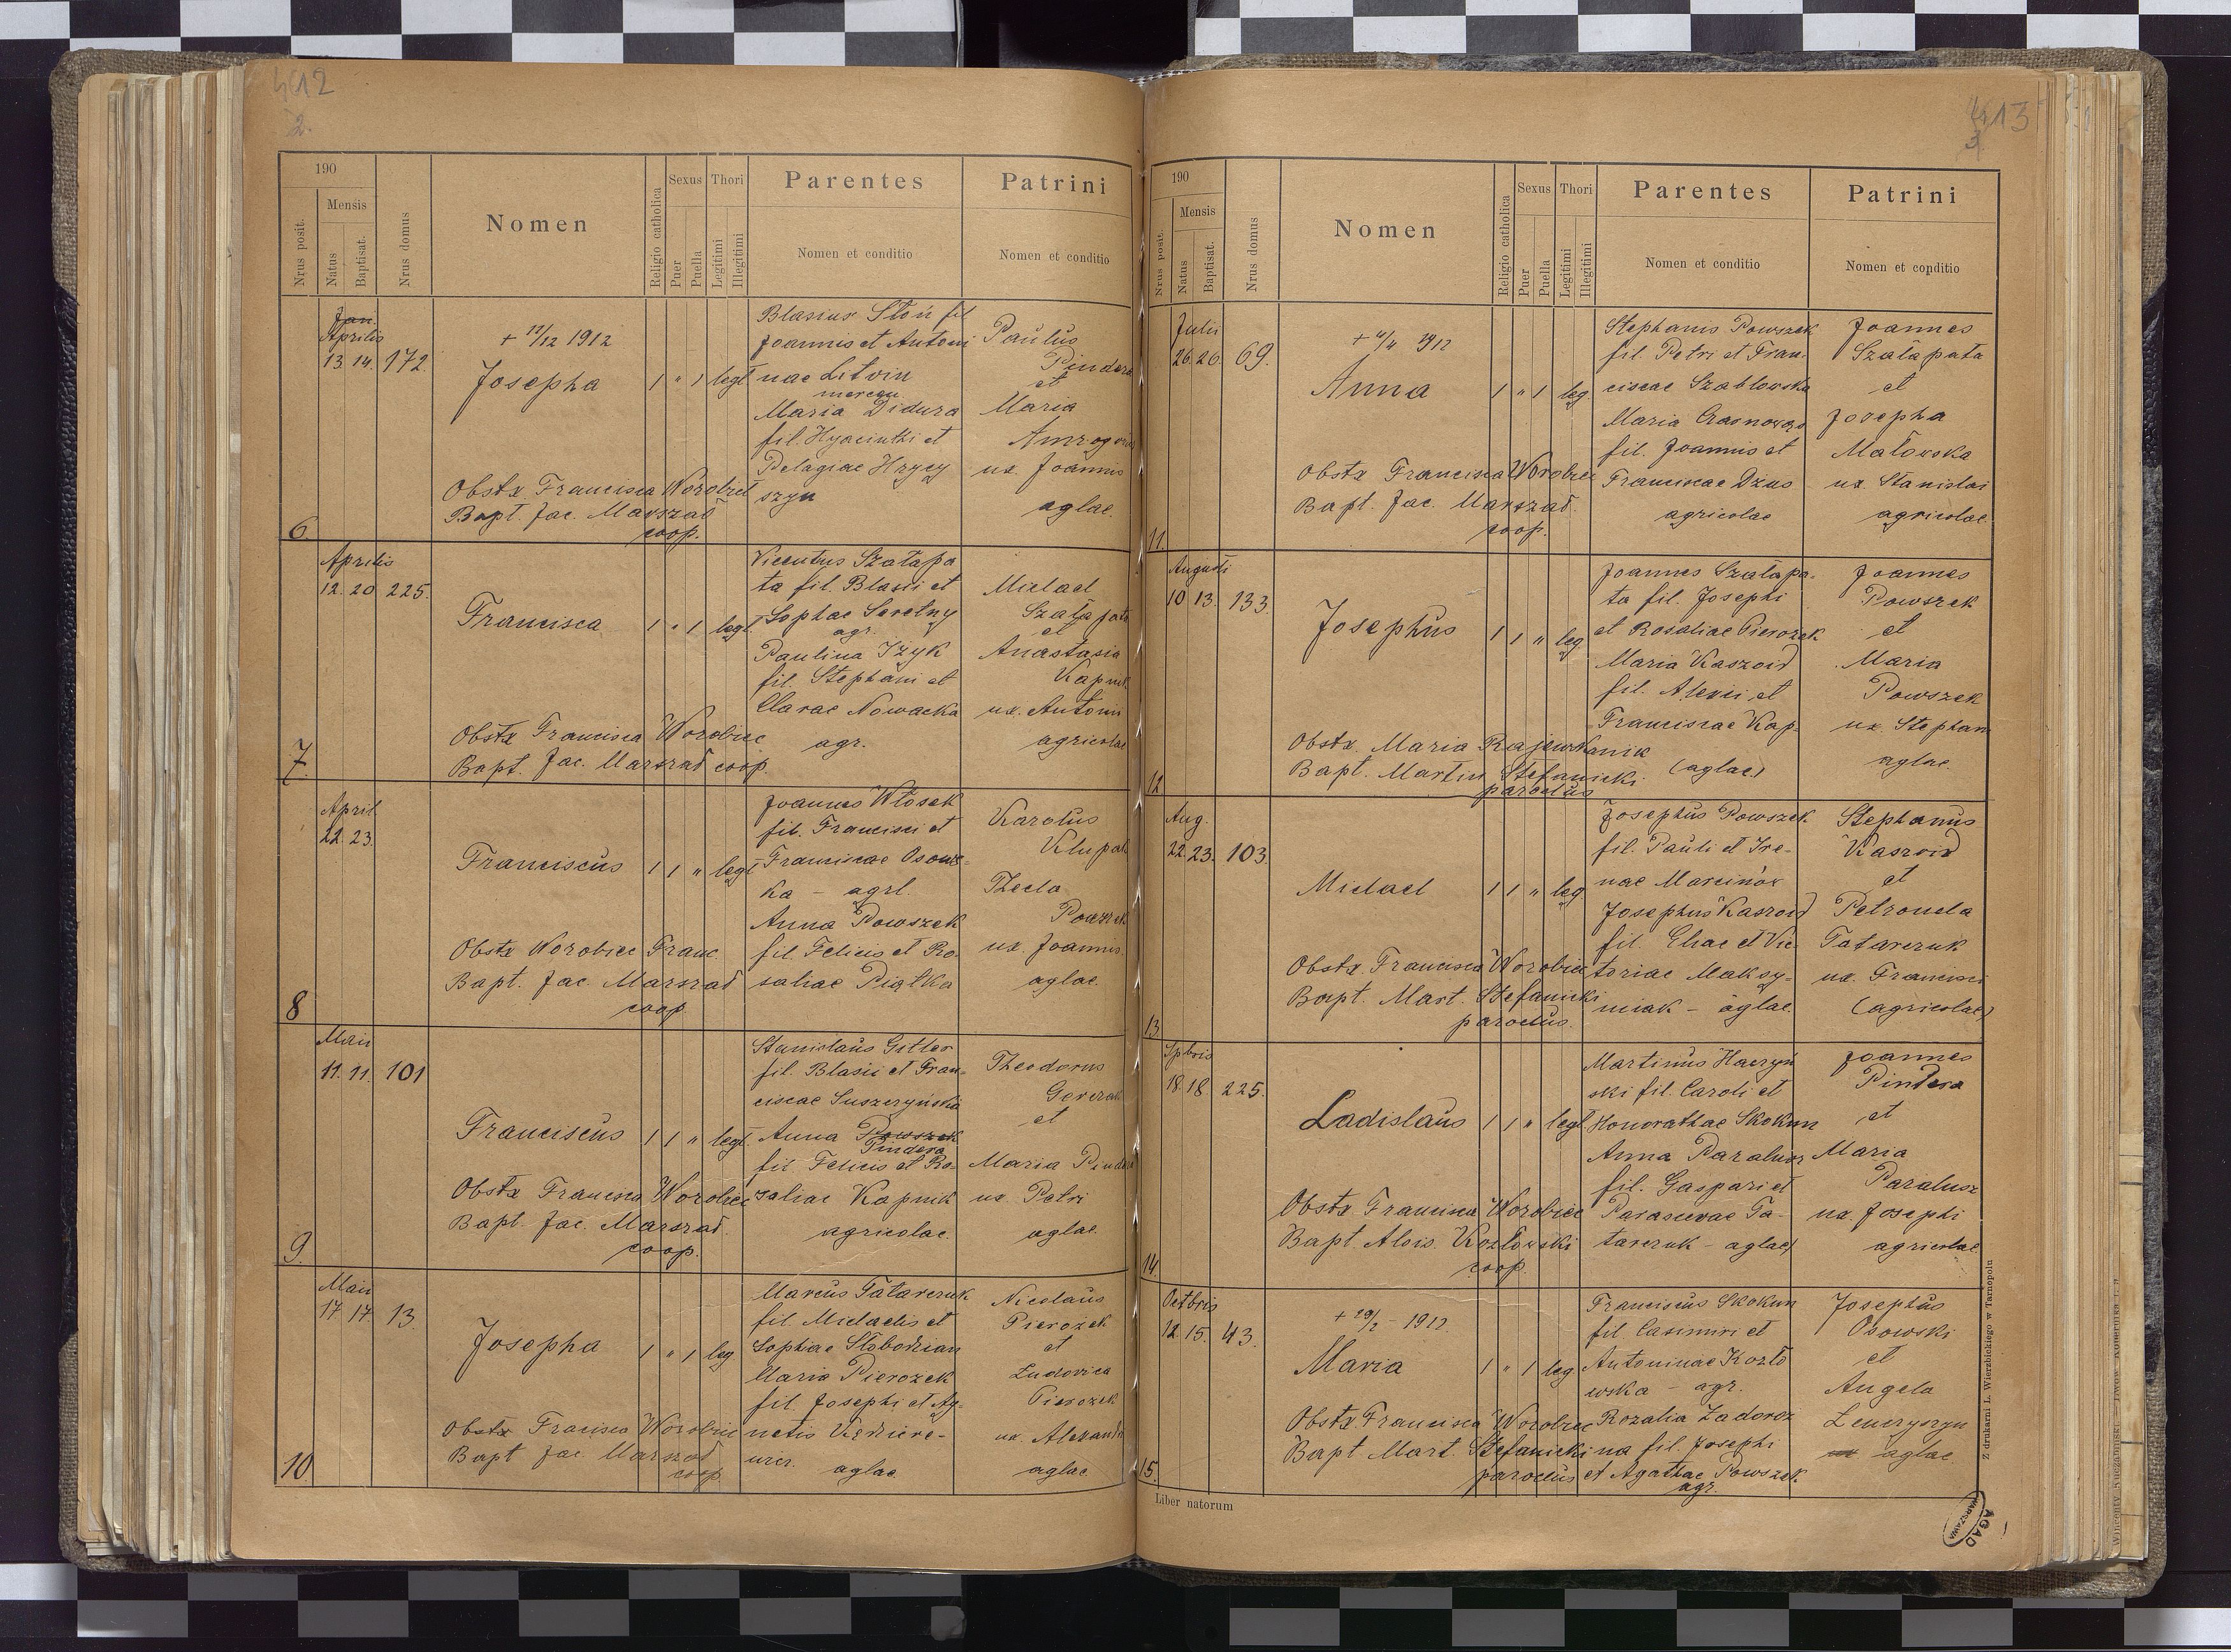 412
2.
190
Nrus posit.
Mensis
Natus
Baptisat.
Nrus domus
Nomen
Religio catholica
Sexus
Puer
Puella
Thori
Legitimi
Illegitimi
Parentes
Nomen et conditio
Patrini
Nomen et conditio
6
Jan.
Aprilis
13. 14. 172.
+ 12/12 1912
Josepha
1 " 1 legt
Obstx Francisca Worobiec
Bapt. Jac. Marszał
coop.
Blasius Słoń fil
Joannis et Antoni
nae Litvin
Maria Didura
fil. Hyacinthi et
Pelagiae Hrycy
szyn
Paulus
Pindera
et
Maria
ux. Joannis
aglae.
7.
Aprilis
12. 20 225.
Francisca
1 " 1 legt.
Obstx Francisca Worobiec
Bapt. Jac. Marszał coop.
Vicentus Szałapa
ta fil. Blasii et
Sophae Seretny
agr.
Paulina Iżyk
fil. Stephani et
Clarae Nowacka
agr.
Michael
Szałapata
et
Anastasia
Kapnik
ux. Antoni
agricolae
8
April
22. 23.
Franciscus
1 1 " legt
Obstx Worobiec Franc
Bapt. Jac. Marszał
coop.
Joannes Włosek
fil. Francisci et
Franciscae Osows-
ka - agrl.
Anna Powszek
fil. Felicis et Ro-
saliae Piątka
Karolus
Klupak
Thecla
Powszek
ux. Joannis
aglae.
9.
Maii
11. 11. 101
Franciscus
1 1 " legt.
Obstx Francisca Worobiec
Bapt. Jac. Marszał.
coop.
Stanislaus Gitler
fil. Blasii et Fran-
ciscae Suszeryńska
Anna Powszek
Pindera
fil. Felicis et Ro-
zaliae Kapnik
agricolae.
Theodorus
et
Maria Pindera
ux Petri
aglae.
10
Maii
17. 17. 13.
Josepha
1 " 1 leg
Obstx Francisca Worobiec
Bapt Jac Marszał
coop.
Marcus Tatarczuk
fil. Michaelis et
Sophiae Słobodzian
Maria Pierozek
fil. Josephi et Ag-
netis
aglae
Nicolaus
Pierozek
et
Ludovica
Pierozek
ux. Alexandri
aglae.
413
3
190
Nrus posit.
Mensis
Natus
Baptisat.
Nrus domus
Nomen
Religio catholica
Sexus
Puer
Puella
Thori
Legitimi
Illegitimi
Parentes
Nomen et conditio
Patrini
Nomen et conditio
11.
Julii
26. 26. 69.
1912
Anna
1 " 1 leg.
Obstx Francisca Worobiec
Bapt. Jac. Marszał.
coop.
Stephanis Powszek
fil. Petri et Fran-
ciscae Szablowska
Maria
fil. Joannis et
Franciscae Dzus
agricolae
Joannes
Szałapata
et
Josepha
Małowska
ux. Stanislai
agricolae.
12
Augusti
10 13. 133.
Josephus
1 1 " leg
Obstx. Maria Rajewska
Bapt. Martin Stefanicki
parochus
Joannes Szałapa-
ta fil. Josephi
et Rosaliae Pierożek
Maria Kaszoid
fil. Alexii et
Franciscae Kap-
nik
(aglae)
Joannes
Powszek
et
Maria
Powszek
ux. Stephani
aglae.
13.
Aug.
22. 23. 103.
Michael
1 1 " leg
Obstx. Francisca Worobiec
Bapt. Mart. Stefanicki
parochus.
Josephus Powszek
fil. Pauli et Ire-
nae Marcinów
Josephus Kaszoid
fil. Eliae et Vic-
toriae Maksy-
miak - aglae.
Stephanus
Kaszoid
et
Petronela
Tatarczuk
ux. Francisci
(agricolae)
14.
18. 18 225.
Ladislaus
1 1 " legt
Obstx Francisca Worobiec
Bapt Alois. Kozłowski
coop.
Martinus Haczyń
ski fil. Caroli et
Honorathae Skokun
Anna Paralusz
fil. Gaspari et
Parascevae Ta-
tarczuk - aglae)
Joannes
Pindera
et
Maria
Paralusz
ux. Josephi
agricolae.
15.
Octbris
12. 15. 43.
+ 20/2 - 1912.
Maria
1 " 1 leg
Obstx Francisca Worobiec
Bapt Mart. Stefanicki
parochus
Franciscus Skokun
fil. Casimiri et
Antoninae Kozło
wska - agr.
Rozalia Zadoroż
na fil. Josephi
et Agathae Powszek
agr.
Josephus
Osowski
et
Angela
aglae
Liber natorum
Z drukarni L. Wierzbickiego w Tarnopolu
AGAD
WARSZAWA